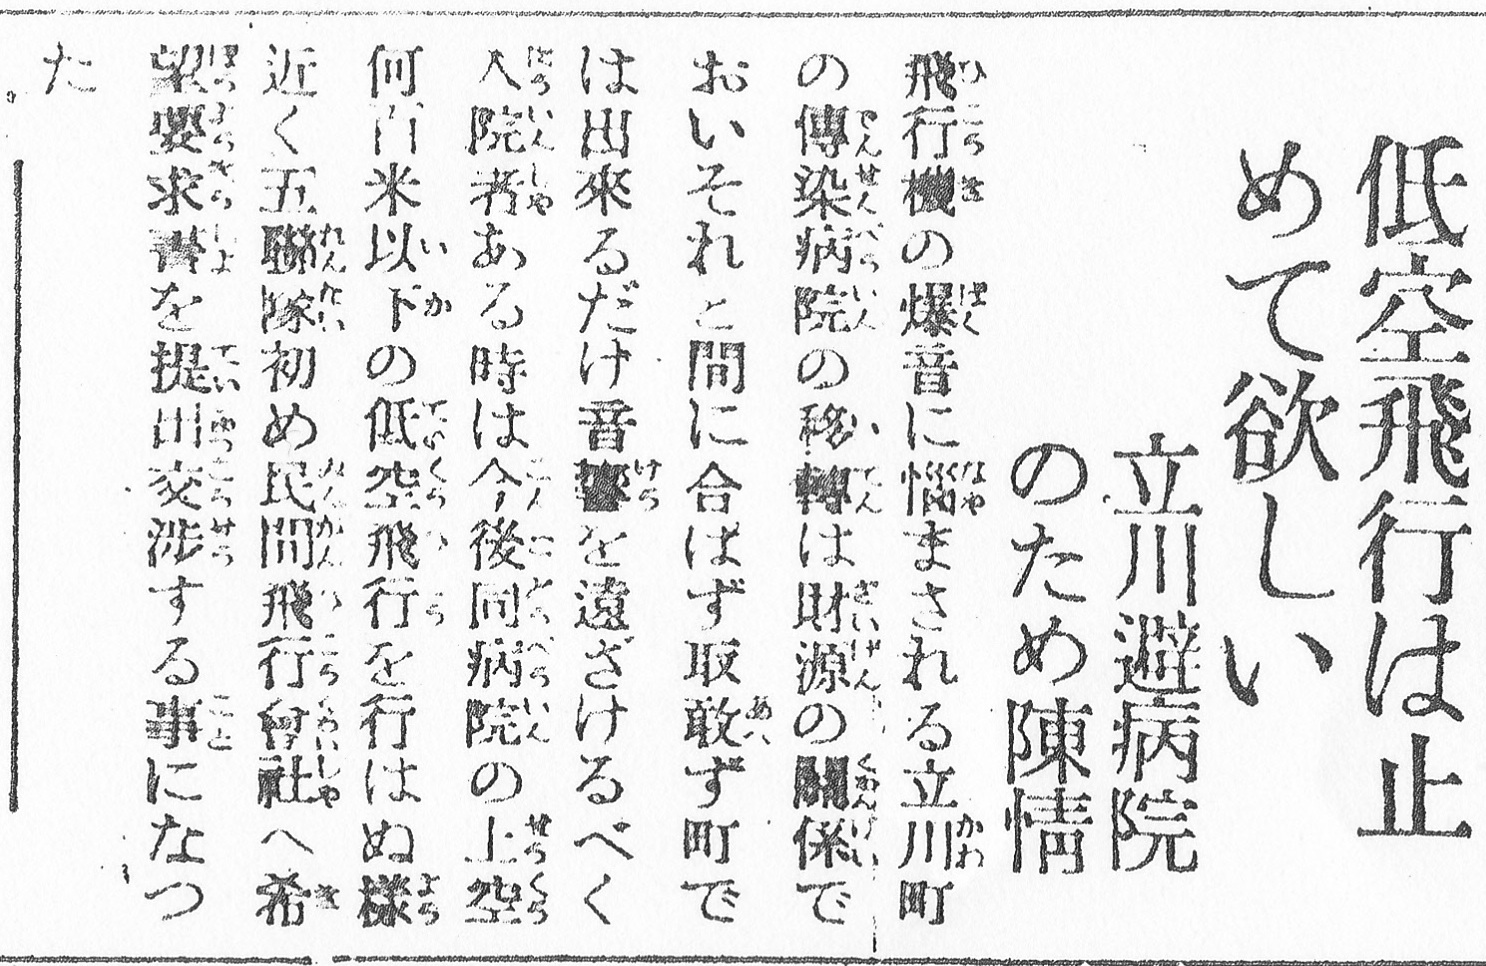 低空飛行は止
めて欲しい
立川避病院
のため陳情
飛行機の爆音に悩まされる立川町
の傳染病院の移轉は財源の關係で
おいそれと間に合はず取敢ず町で
は出來るだけ音響を遠ざけるべく
入院者ある時は今後同病院の上空
何百米以下の低空飛行を行はぬ樣
近く五聯隊初め民間飛行會社へ希
望要求書を提出交渉する事になつ
た